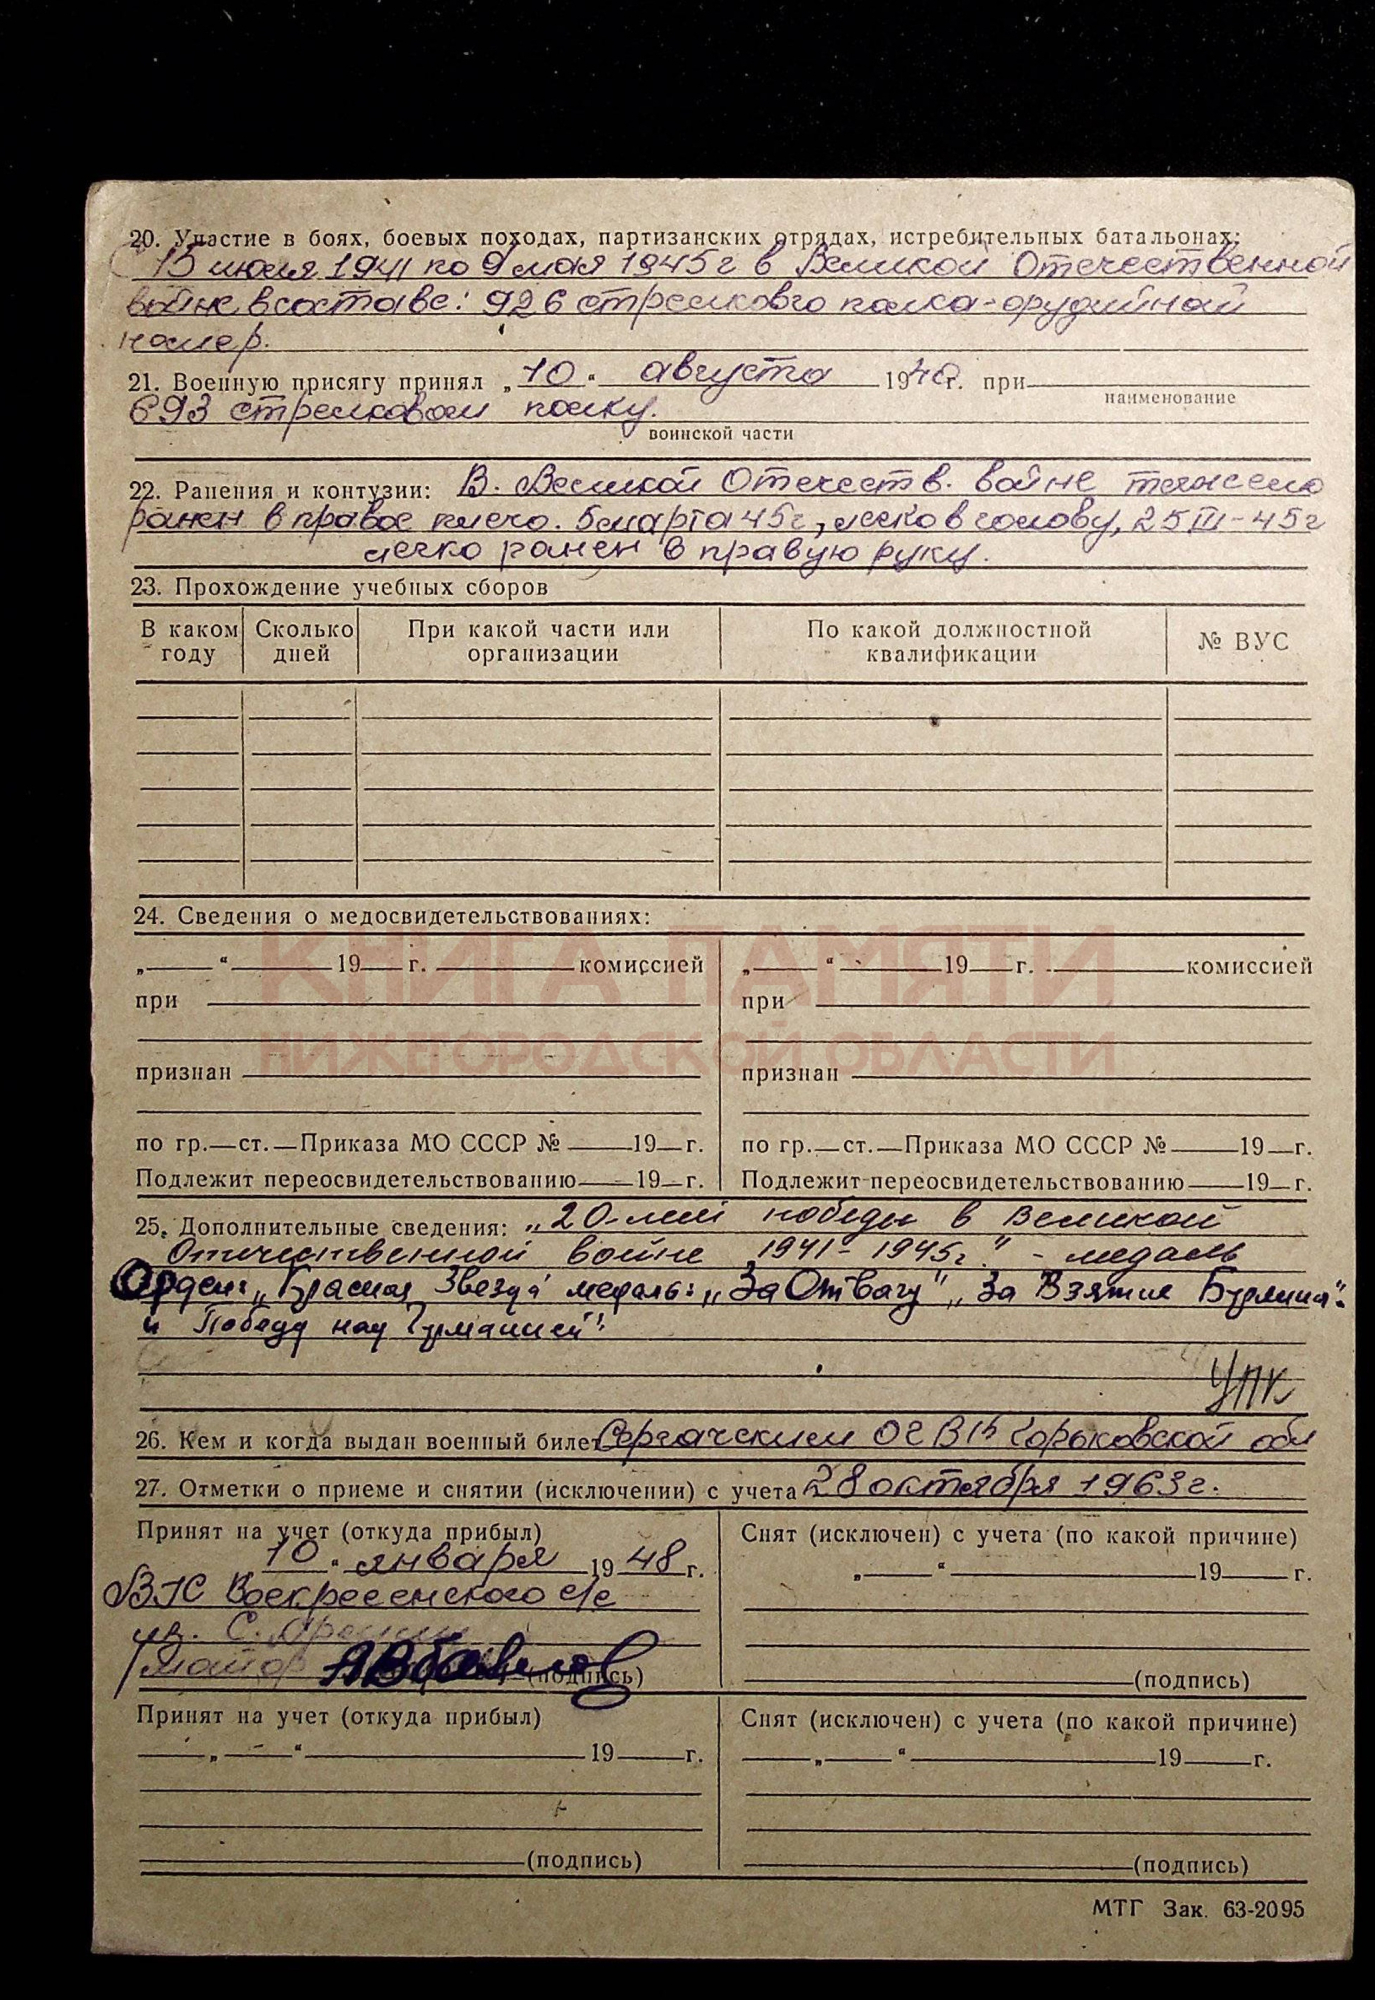 20. Участие в боях, боевых походах, партизанских отрядах, истребительных батальонах:
С 15 июля 1941 по 9 мая 1945 г в Великой Отечественной
войне в составе: 926 стрелкового полка - орудийный
номер.
21. Военную присягу принял „10“ августа 1940 г. при
наименование
693 стрелковом полку.
воинской части
22. Ранения и контузии: В. Великой Отечеств. войне тяжело
ранен в правое плечо. 5 марта 45 г, легко в голову, 25 III - 45 г
легко ранен в правую руку.
23. Прохождение учебных сборов
В каком году Сколько дней При какой части или организации По какой должностной квалификации № ВУС
24. Сведения о медосвидетельствованиях:
КНИГА ПАМЯТИ
НИЖЕГОРОДСКОЙ ОБЛАСТИ
„ “ 19 г. комиссией „ “ 19 г. комиссией
при при
признан признан
по гр. ст. Приказа МО СССР № 19 г. по гр. ст. Приказа МО СССР № 19 г.
Подлежит переосвидетельствованию 19 г. Подлежит переосвидетельствованию 19 г.
25. Дополнительные сведения: „20 лет победы в Великой
Отечественной войне 1941 - 1945 г." - медаль
Орден: „Красная Звезда" медаль: „За Отвагу" „За Взятие Берлина".
и "Победу над Германией"
УПК
26. Кем и когда выдан военный билет Сергачским ОГВК Горьковской обл
27. Отметки о приеме и снятии (исключении) с учета 28 октября 1963 г.
Принят на учет (откуда прибыл) Снят (исключен) с учета (по какой причине)
10 " января 1948 г. „ “ 19 г.
ВУС Воскресенского с/с
майор (подпись) (подпись)
Принят на учет (откуда прибыл) Снят (исключен) с учета (по какой причине)
„ “ 19 г. „ “ 19 г.
(подпись) (подпись)
МТГ Зак. 63-2095